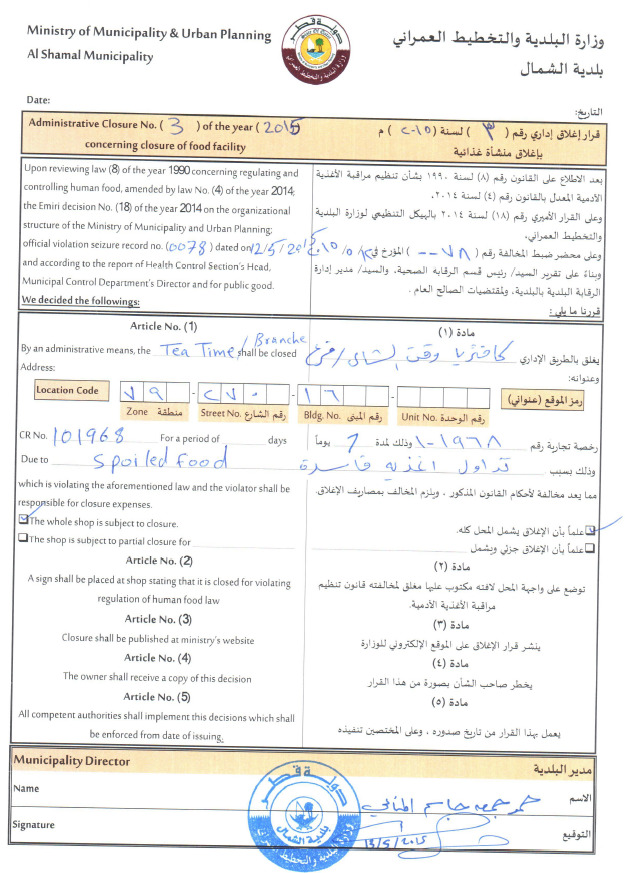 Ministry of Municipality & Urban Planning
Al Shamal Municipality
وزارة البلدية والتخطيط العمراني
بلدية الشمال
دولة قطر
Date:
التاريخ:
Administrative Closure No. ( 3 ) of the year ( 2015
concerning closure of food facility
قرار إغلاق إداري رقم ( ٣ ) لسنة ( ٢٠١٥ ) م
بإغلاق منشأة غذائية
Upon reviewing law (8) of the year 1990 concerning regulating and
controlling human food, amended by law No. (4) of the year 2014;
the Emiri decision No. (18) of the year 2014 on the organizational
structure of the Ministry of Municipality and Urban Planning;
official violation seizure record no. (0078) dated on 12/5/2015
and according to the report of Health Control Section's Head,
Municipal Control Department's Director and for public good.
We decided the followings:
بعد الاطلاع على القانون رقم (٨) لسنة ١٩٩٠ بشأن تنظيم مراقبة الأغذية
الآدمية المعدل بالقانون رقم (٤) لسنة ٢٠١٤.
وعلى القرار الأميري رقم (١٨) لسنة ٢٠١٤ بالهيكل التنظيمي لوزارة البلدية
والتخطيط العمراني.
وعلى محضر ضبط المخالفة رقم ( ٠٠٧٨ ) المؤرخ في ١٢/٥/٢٠١٥
وبناءً على تقرير السيد/ رئيس قسم الرقابة الصحية، والسيد/ مدير إدارة
الرقابة البلدية بالبلدية، ولمقتضيات الصالح العام .
قررنا ما يلي:
Article No. (1)
By an administrative means, the Tea Time / Branche shall be closed
Address:
مادة (١)
يغلق بالطريق الإداري كافتريا وقت الشاي / فرع
وعنوانه:
Location Code ٧٩ - ٢٧٠ - ١٦ - رمز الموقع (عنواني)
Zone منطقة Street No. رقم الشارع Bldg. No. رقم المبنى Unit No. رقم الوحدة
CR No. 101968 For a period of days
Due to spoiled food
which is violating the aforementioned law and the violator shall be
responsible for closure expenses.
The whole shop is subject to closure.
The shop is subject to partial closure for
رخصة تجارية رقم ١٠١٩٦٨ وذلك لمدة يوماً
وذلك بسبب تداول اغذيه فاسدة
مما يعد مخالفة لأحكام القانون المذكور ، ويلزم المخالف بمصاريف الإغلاق.
علماً بأن الإغلاق يشمل المحل كله.
علماً بأن الإغلاق جزئي ويشمل
Article No. (2)
A sign shall be placed at shop stating that it is closed for violating
regulation of human food law
مادة (٢)
توضع على واجهة المحل لافته مكتوب عليها مغلق لمخالفته قانون تنظيم
مراقبة الأغذية الآدمية.
Article No. (3)
Closure shall be published at ministry's website
مادة (٣)
ينشر قرار الإغلاق على الموقع الإلكتروني للوزارة
Article No. (4)
The owner shall receive a copy of this decision
مادة (٤)
يخطر صاحب الشأن بصورة من هذا القرار
Article No. (5)
All competent authorities shall implement this decisions which shall
be enforced from date of issuing.
مادة (٥)
يعمل بهذا القرار من تاريخ صدوره ، وعلى المختصين تنفيذه
Municipality Director
مدير البلدية
Name
الاسم
حمد جمعه جاسم المناعي
Signature
التوقيع
13/5/2015
دولة قطر
بلدية الشمال
وزارة البلدية والتخطيط العمراني